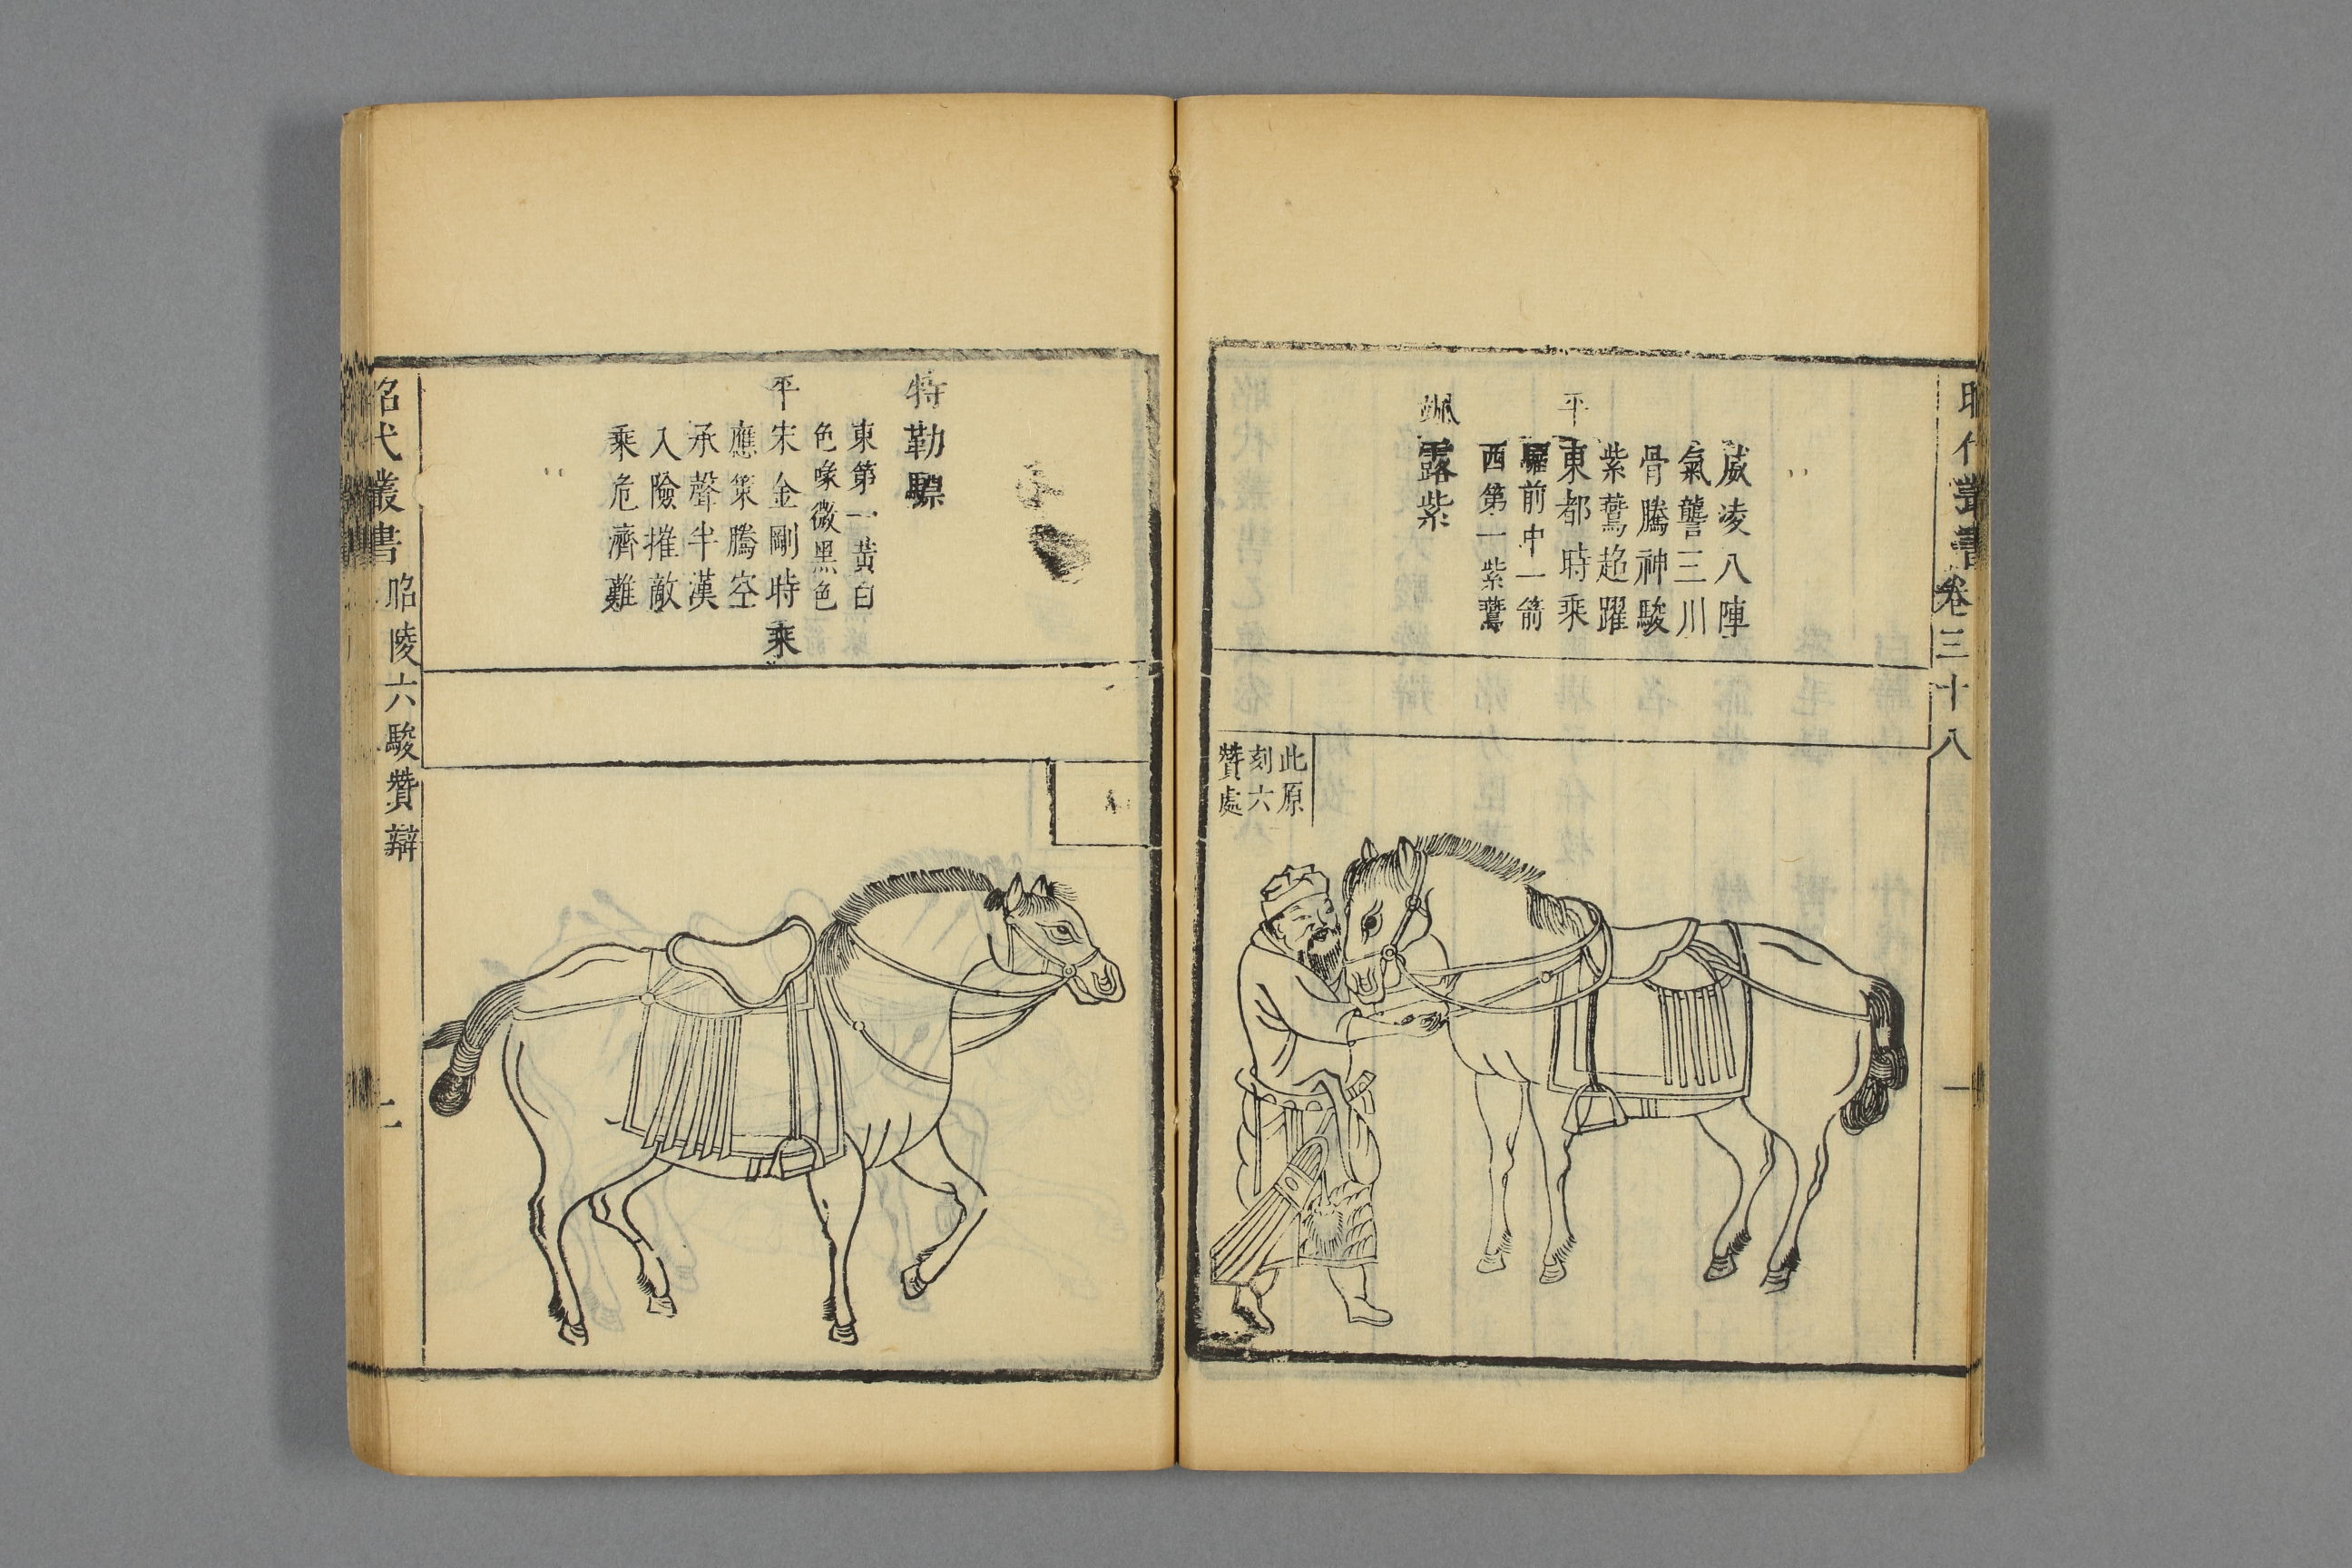 昭代叢書
卷三十八
一
颯露紫
西第一紫鷰
騮前中一箭
平東都時乘
紫鷰超躍
骨騰神駿
氣讋三川
威凌八陣
此原
刻六
贊處
特勒驃
東第一黃白
色喙微黑色
平宋金剛時乘
應策騰空
承聲半漢
入險摧敵
乘危濟難
昭代叢書
昭陵六駿贊辯
二